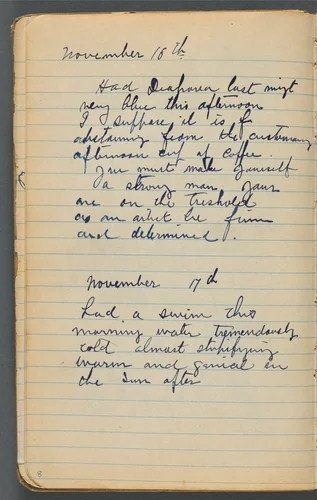 November 16th
Had Diahorea last night
very blue this afternoon
I suppose it is f
abstaining from the customary
afternoon cup of coffee.
You must make yourself
a strong man. You
are on the treshold
as an artist be firm
and determined.
November 17th
Had a swim this
morning water tremendously
cold almost stupifying
warm and genial in
the sun after
8